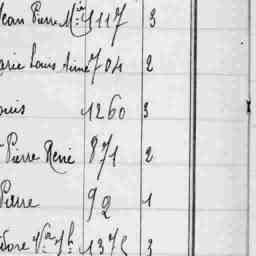 Jean Pierre M^ie 1117 3
Marie Louis Aimé 704 2
Louis 1260 3
Pierre René 871 2
Pierre 92 1
3